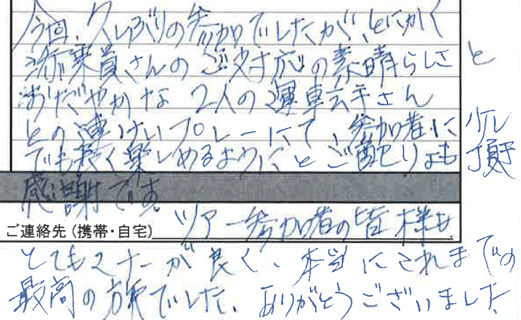 今回、久しぶりの参加でしたが、とにかく
添乗員さんのご対応の素晴らしさと
おだやかな2人の運転手さん
との連けいプレーにて、参加者に少し
でも長く楽しめるようにとご配りょも頂き
感謝です。
ツアー参加者の皆様も
ご連絡先(携帯・自宅)
とてもマナーが良く、本当にこれまでの
最高の旅でした。ありがとうございました